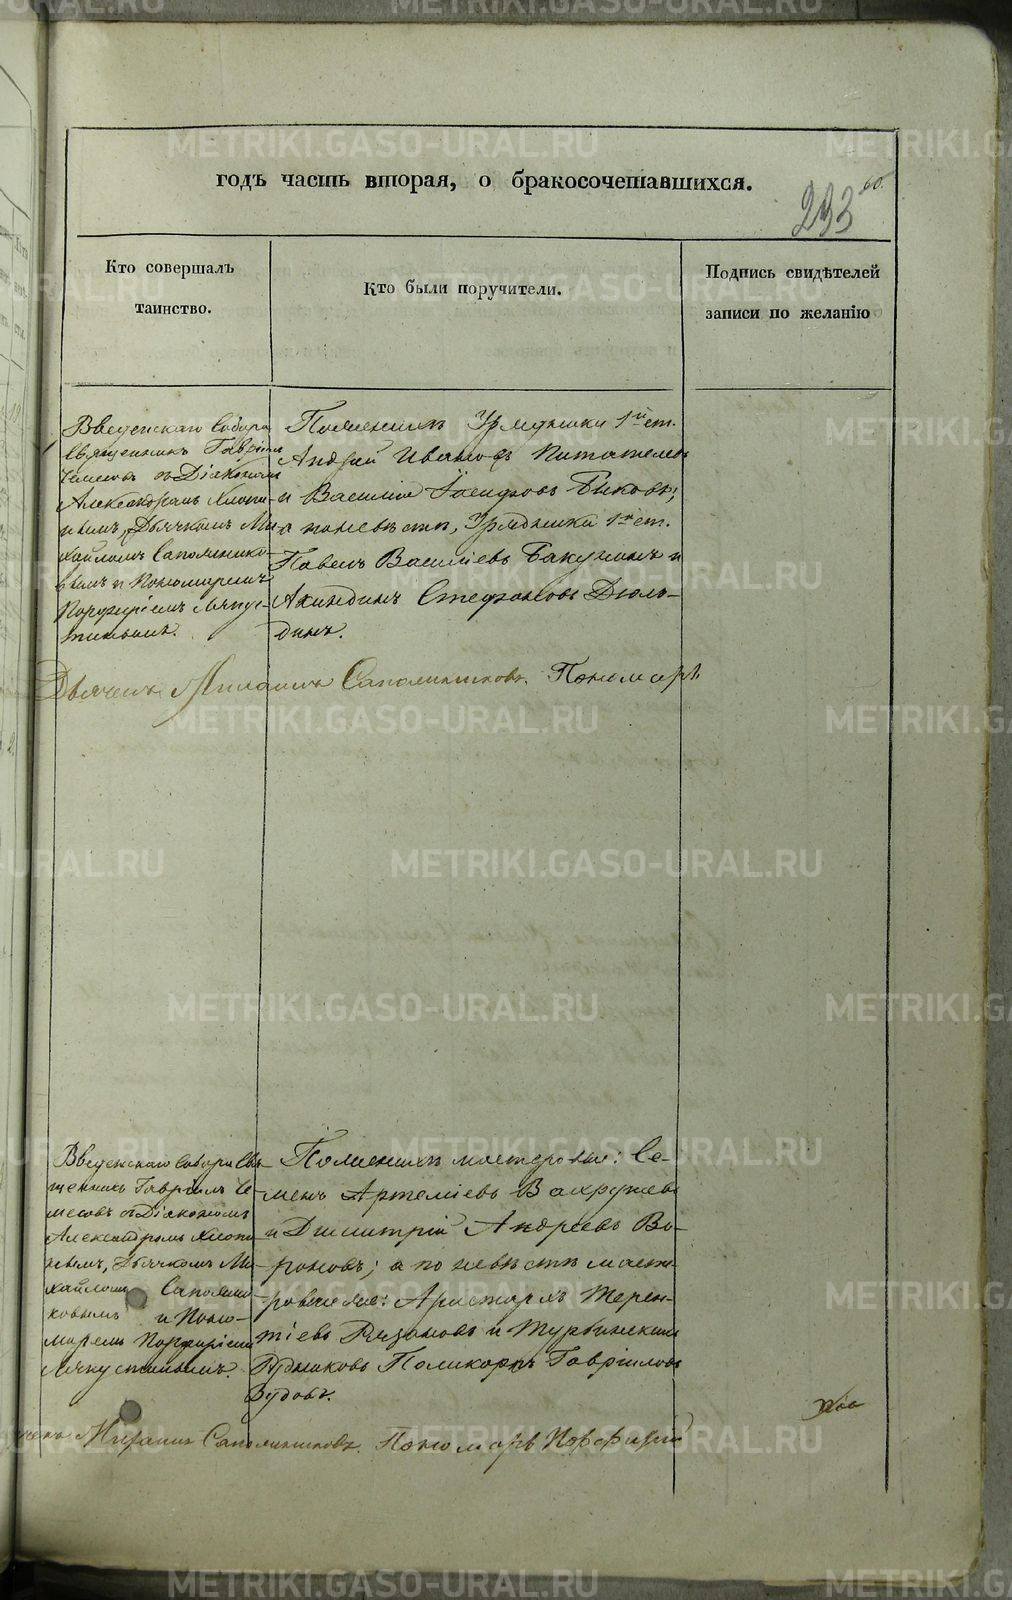 годъ часть вторая, о бракосочетавшихся.
233
60.
Кто совершалъ
таинство.
Кто были поручители.
Подпись свидѣтелей
записи по желанію
Введенскаго Собора
Священникъ Гавріилъ
Чемесовъ съ Діакономъ
Александромъ Хлопи-
нымъ, Дьячкомъ Ми-
хайломъ Сапожнико-
вымъ и Пономаремъ
Порфиріемъ Мяку-
тинымъ.
По женихѣ Урядники 1й ст.
Андрей Ивановъ Питателевъ
и Василій Іосифовъ Быковъ;
а по невѣстѣ, Урядники 1й ст.
Павелъ Васильевъ Бакунинъ и
Акиндинъ Стефановъ Дюль-
динъ.
Дьячекъ Михаилъ Сапожниковъ. Пономарь
Введенскаго Собора Свя-
щенникъ Гавріилъ Че-
месовъ съ Діакономъ
Александромъ Хлопи-
нымъ, Дьячкомъ Ми-
хайломъ Сапожни-
ковымъ и Поно-
маремъ Порфиріемъ
По женихѣ мастеровые: Се-
менъ Артеміевъ Вахрушевъ
и Димитрій Андреевъ Во-
роновъ; а по невѣстѣ масте-
ровые же: Аристархъ Терен-
тіевъ Рязановъ и Турьинскихъ
Рудниковъ Поликарпъ Гавріиловъ
Зудовъ.
Михаилъ Сапожниковъ. Пономарь Порфирій
METRIKI.GASO-URAL.RU